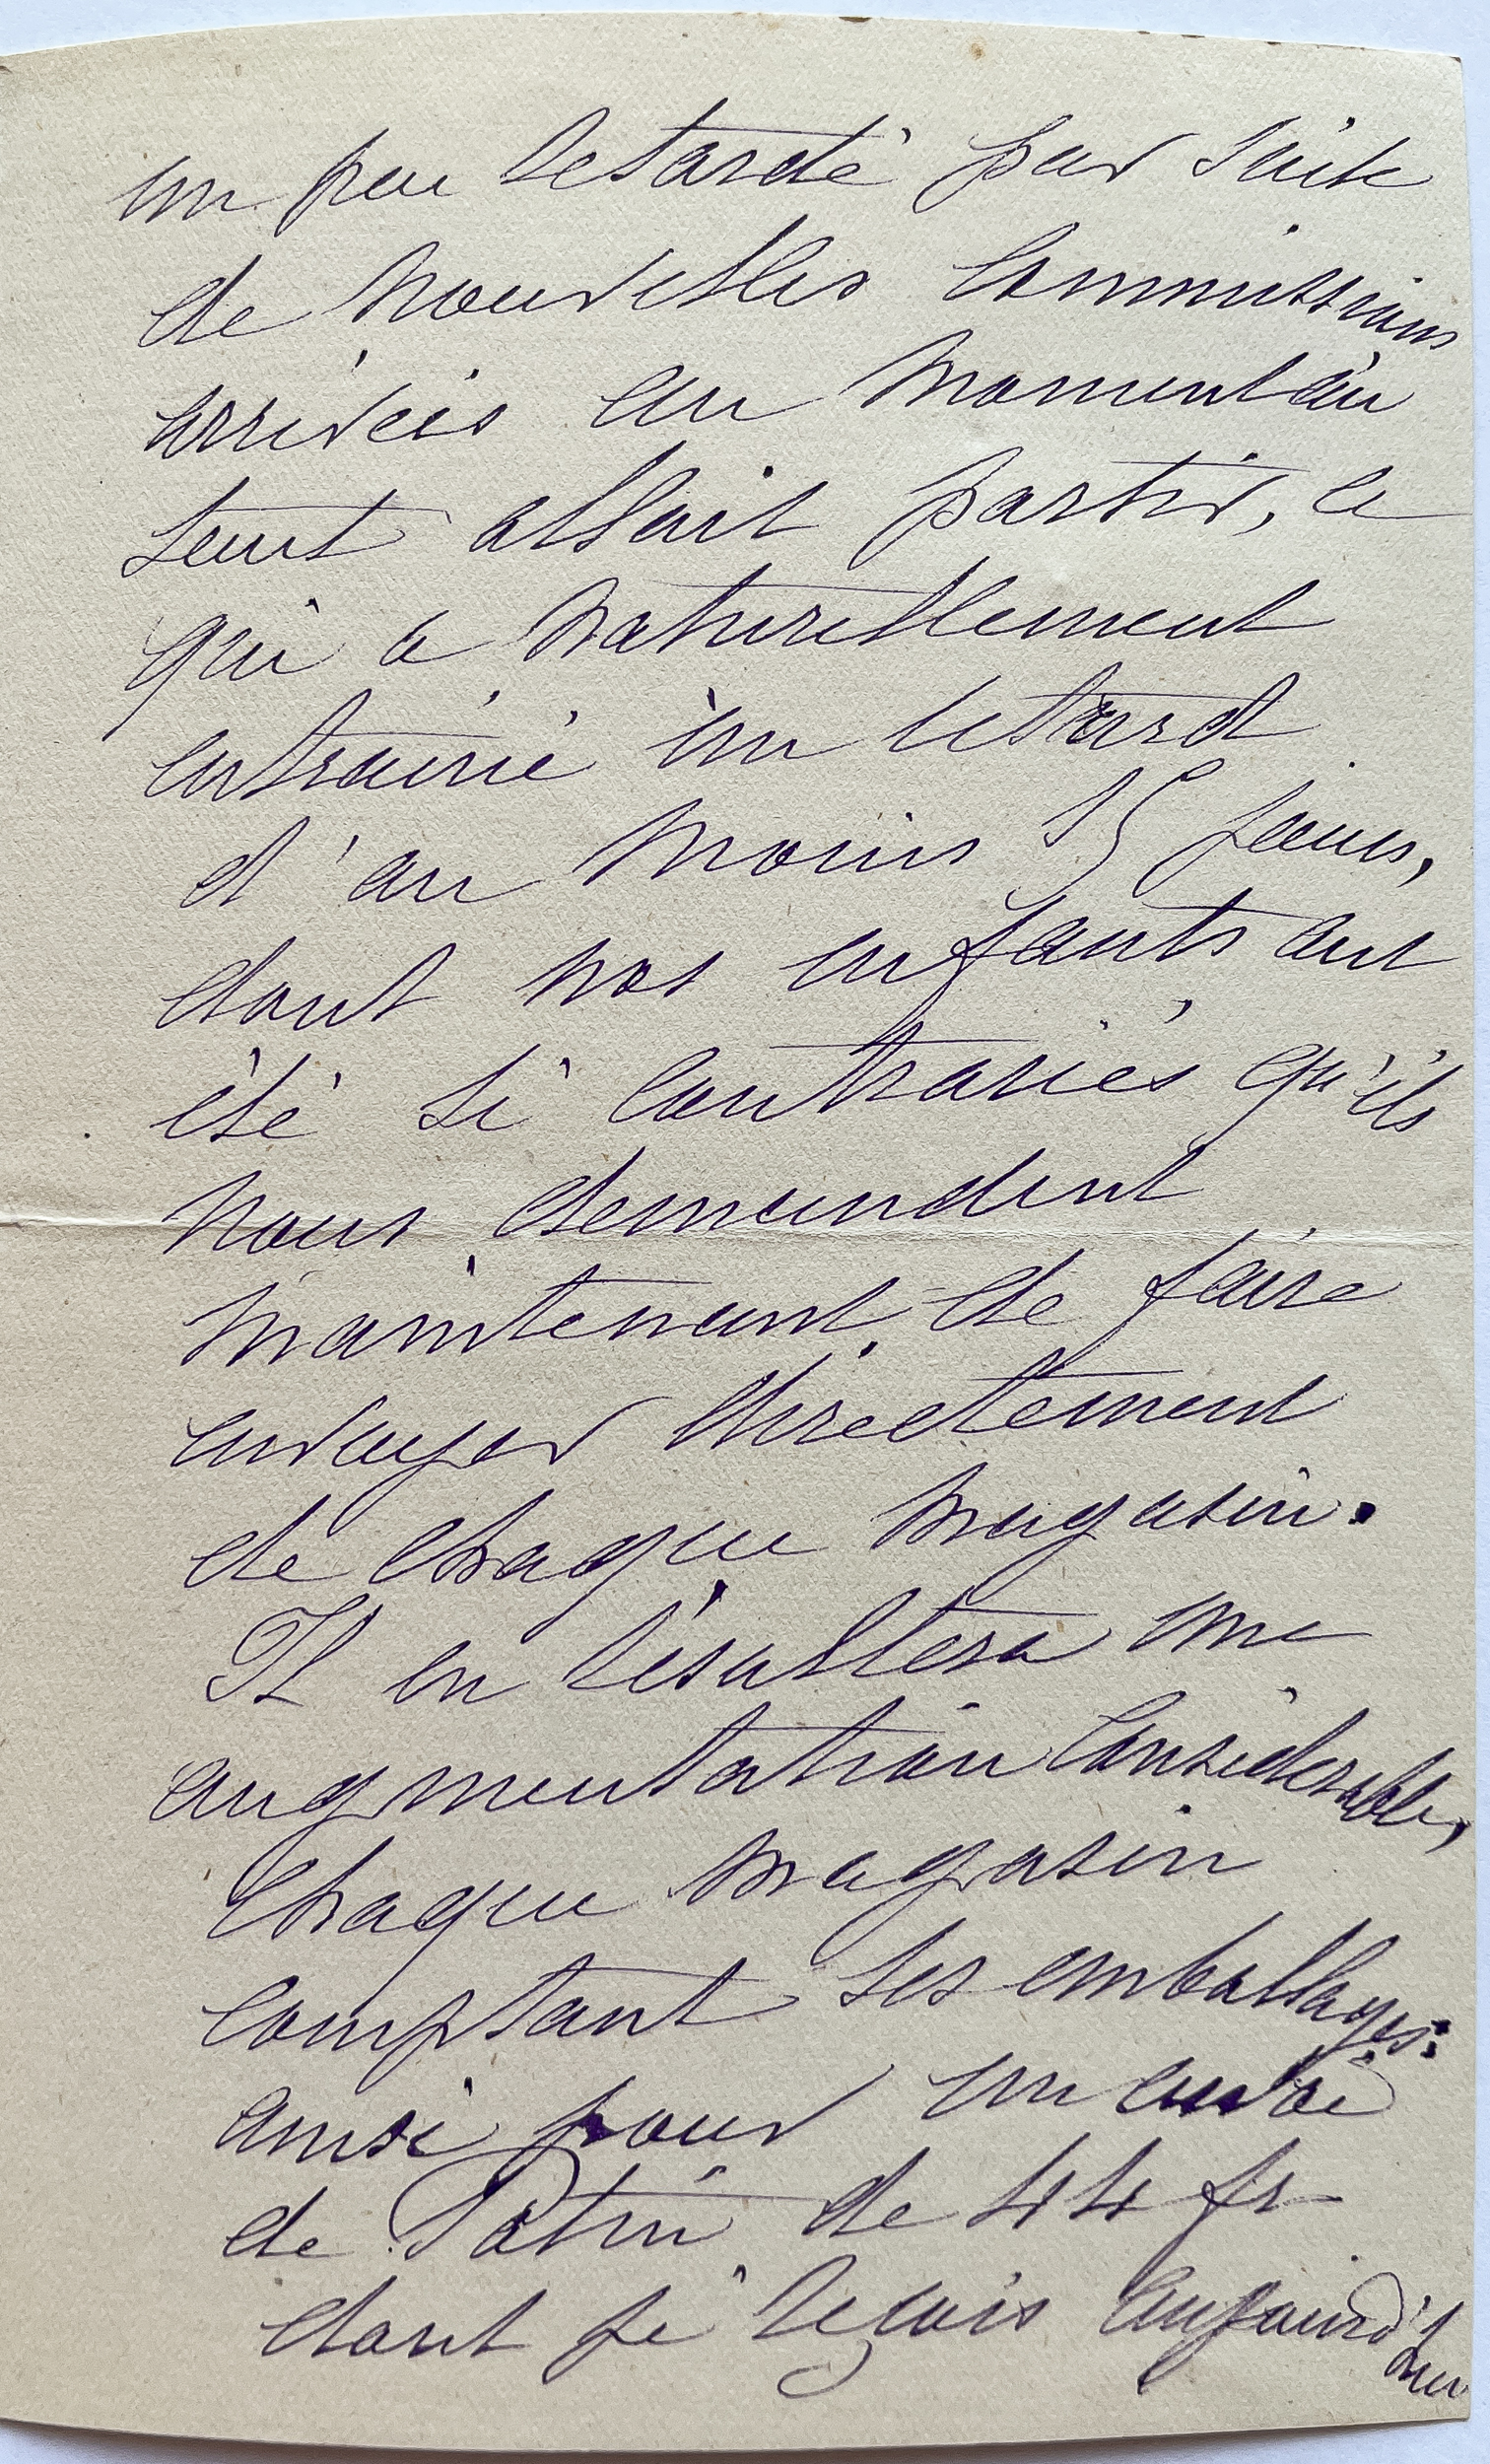 un peu retardé par suite
de nouvelles commissions
arrivées au moment où
tout allait partir, ce
qui a naturellement
entrainé un retard
d'au moins 15 jours,
dont nos enfants ont
été si contrariés qu'ils
nous demandent
maintenant de faire
envoyer directement
de chaque magasin.
Il en résultera une
augmentation considérable,
chaque magasin
comptant ses emballages:
ainsi pour un envoi
de Potin de 44 fr
dont je reçois aujourd'hui